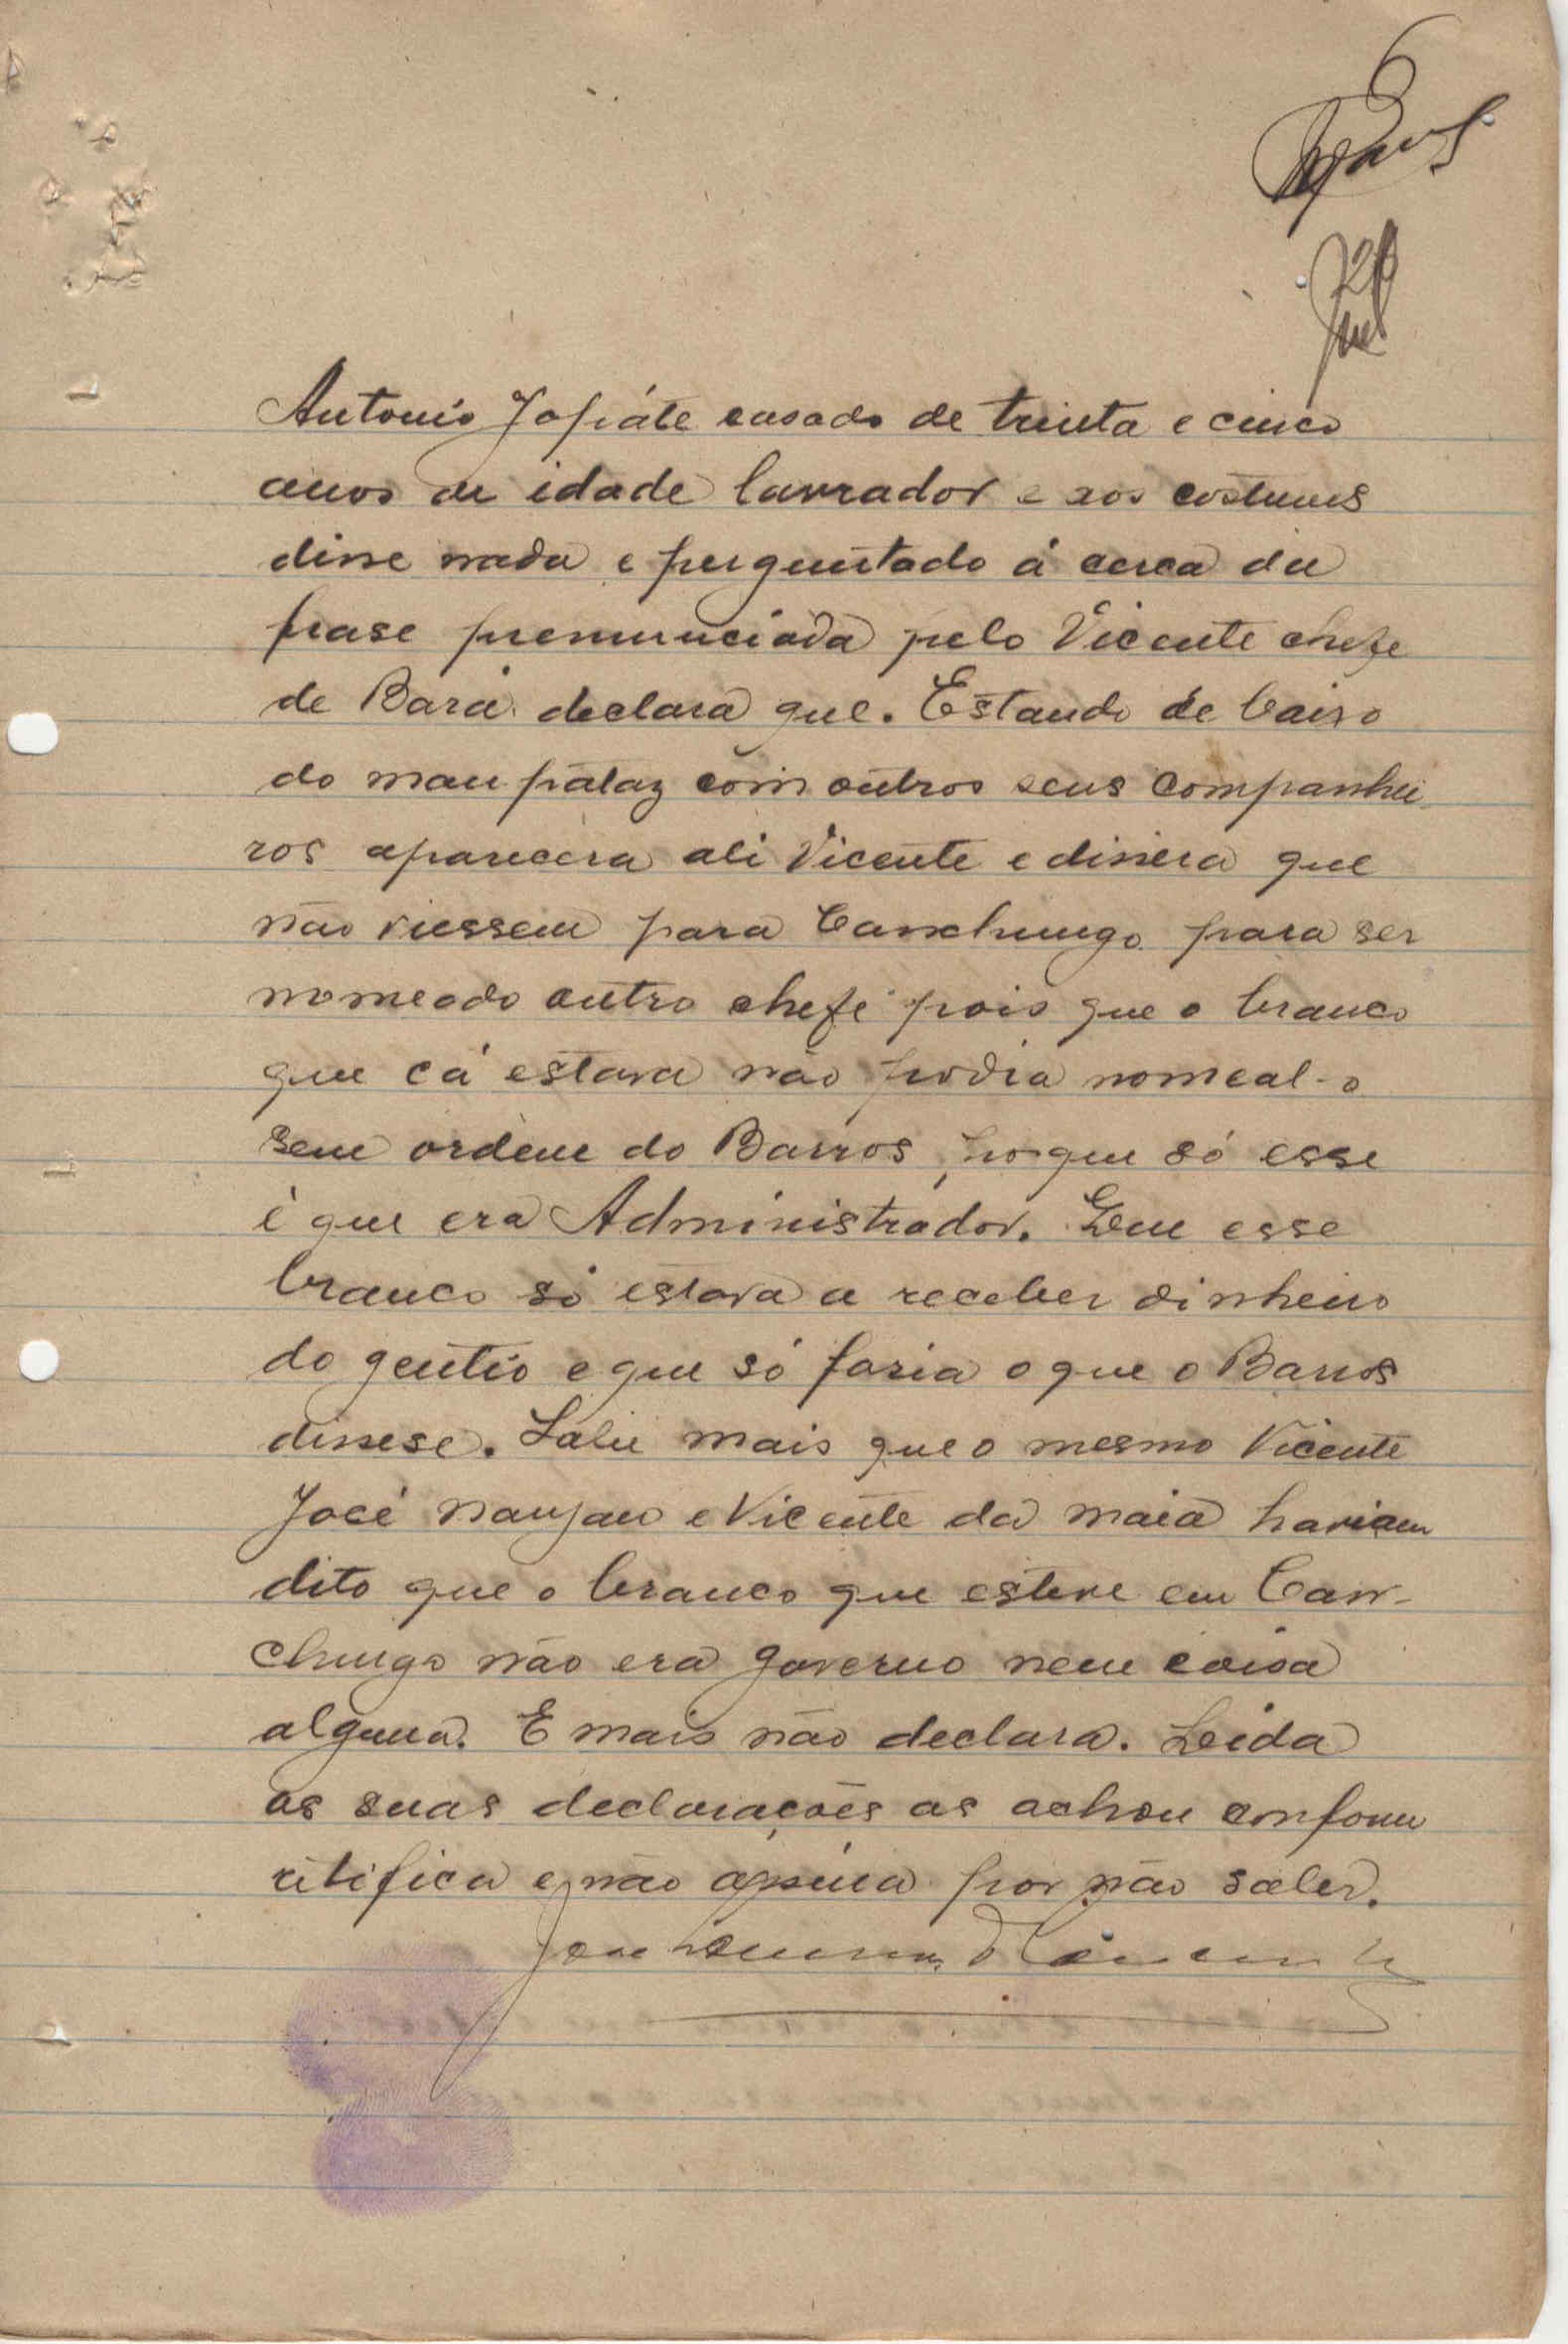 6
Antonio Japiáte casado de trinta e cinco
anos de idade lavrador e aos costumes
disse nada e perguntado á cerca da
frase prenunciada pelo Vicente chefe
de Bará declara que. Estando de baixo
do mampataz com outros seus companhei
ros aparecera ali Vicente e dissera que
não viessem para Canchungo para ser
nomeado outro chefe pois que o branco
que cá estava não podia nomeal-o
sem ordem do Barros, porque só esse
é que era Administrador. Que esse
branco só estava a receber dinheiro
do gentio e que só fazia o que o Barros
dissese. Sabe mais que o mesmo Vicente
José Nanjan e Vicente da maia haviam
dito que o branco que esteve em Can-
chungo não era governo nem coisa
alguma. E mais não declara. Leida
as suas declarações as achou conforme
retifica e não assina por não saber.